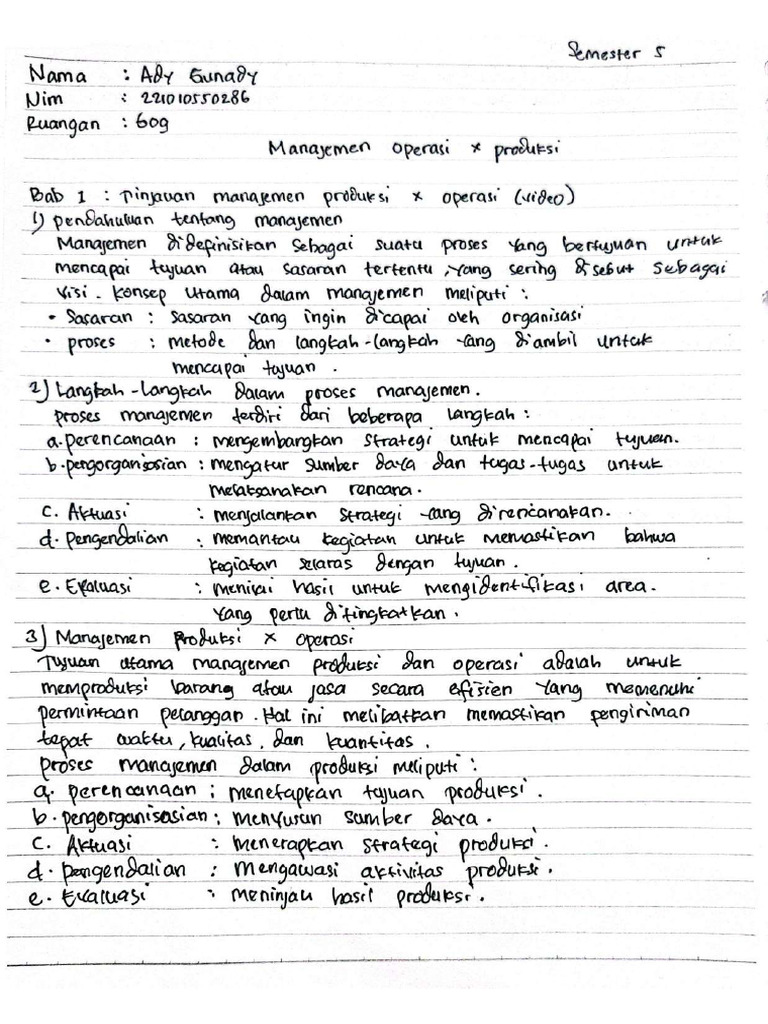 Semester 5
Nama : Ady Gunady
Nim : 221010550286
Ruangan : 609
Manajemen operasi x produksi
Bab 1 : Tinjauan manajemen produksi x operasi (video)
1) pendahuluan tentang manajemen
Manajemen didefinisikan sebagai suatu proses yang bertujuan untuk
mencapai tujuan atau sasaran tertentu, yang sering disebut sebagai
visi. Konsep utama dalam manajemen meliputi :
• Sasaran : sasaran yang ingin dicapai oleh organisasi
• proses : metode dan langkah-langkah yang diambil untuk
mencapai tujuan.
2) Langkah-langkah dalam proses manajemen.
proses manajemen terdiri dari beberapa langkah :
a. perencanaan : mengembangkan strategi untuk mencapai tujuan.
b. pengorganisasian : mengatur sumber daya dan tugas-tugas untuk
melaksanakan rencana.
c. Aktuasi : menjalankan strategi yang direncanakan.
d. Pengendalian : memantau kegiatan untuk memastikan bahwa
kegiatan selaras dengan tujuan.
e. Evaluasi : menilai hasil untuk mengidentifikasi area.
yang perlu ditingkatkan.
3) Manajemen produksi x operasi
Tujuan utama manajemen produksi dan operasi adalah untuk
memproduksi barang atau jasa secara efisien yang memenuhi
permintaan pelanggan. Hal ini melibatkan memastikan pengiriman
tepat waktu, kualitas, dan kuantitas.
proses manajemen dalam produksi meliputi :
a. perencanaan : menetapkan tujuan produksi.
b. pengorganisasian : menyusun sumber daya.
c. Aktuasi : menerapkan strategi produksi.
d. pengendalian : mengawasi aktivitas produksi.
e. Evaluasi : meninjau hasil produksi.